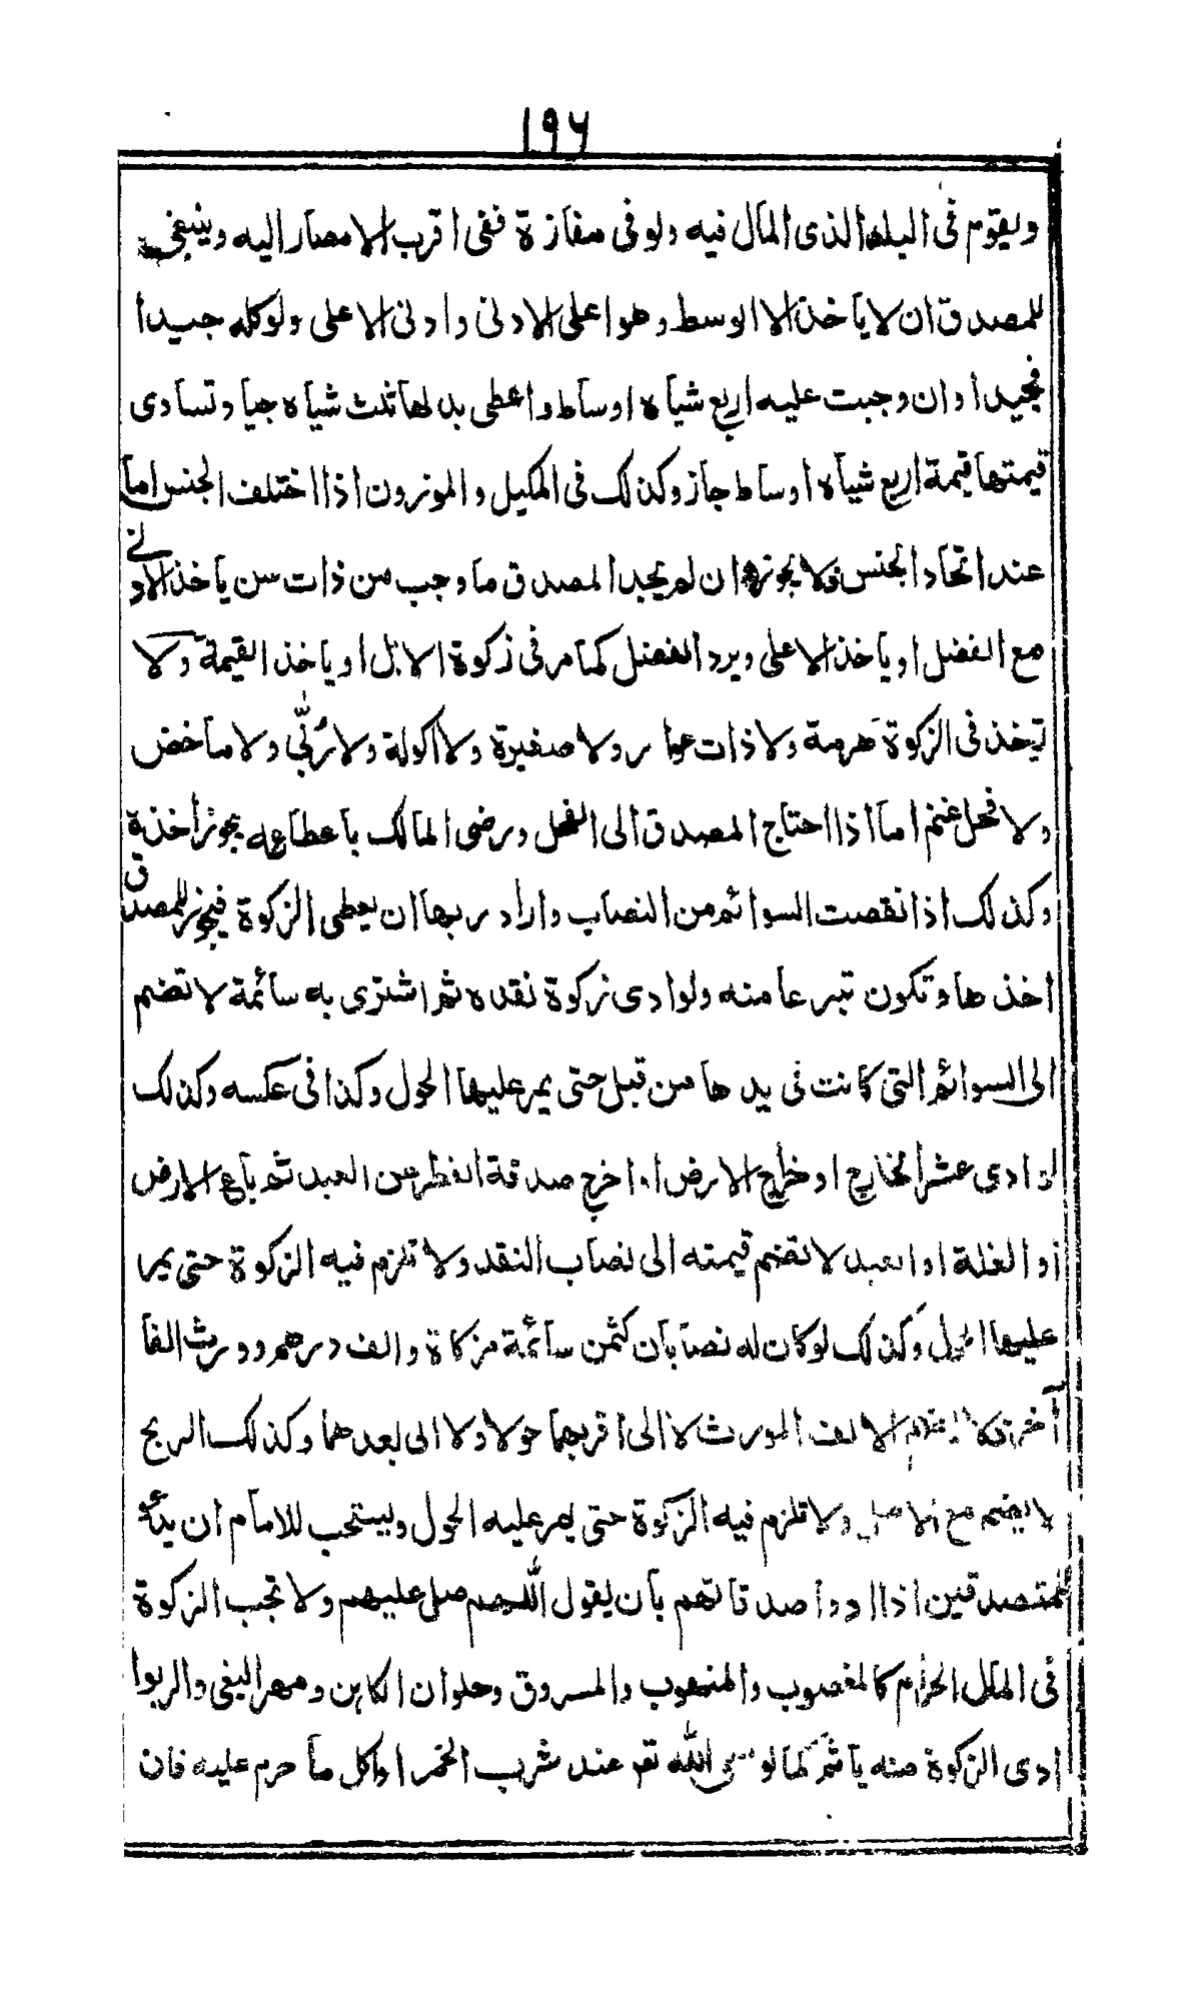 ١٩٦
ويقوم في البلد الذى المال فيه ولو فى مفازة ففى اقرب الامصار اليه وينبغى
للمصدق ان لا يأخذ الا الوسط وهو اعلى الادنى وادنى الاعلى ولو كله جيدا
فجيدا وان وجبت عليه اربع شياه اوساط واعطى بدلها ثلث شياه جياد تساوى
قيمتها قيمة اربع شياه اوساط جاز وكذلك فى المكيل والموزون اذا اختلف الجنس اما
عند اتحاد الجنس فلا يجوز وان لم يجد المصدق ما وجب من ذات سن يأخذ الادنى
مع الفضل او يأخذ الاعلى ويرد الفضل كما مر فى زكوة الابل او يأخذ القيمة ولا
تؤخذ فى الزكوة هرمة ولا ذات عوار ولا صغيرة ولا اكولة ولا رُبّى ولا ماخض
ولا فحل غنم اما اذا احتاج المصدق الى الفحل ورضى المالك باعطاءه يجوز اخذه
وكذلك اذا نقصت السوائم من النصاب واراد ربها ان يعطى الزكوة فيجوز للمصدق
اخذها وتكون تبرعا منه ولو ادى زكوة نقده ثم اشترى به سائمة لا تضم
الى السوائم التى كانت فى يدها من قبل حتى يمر عليها الحول وكذا فى عكسه وكذلك
ادى عشر الخارج او خراج الارض او اخرج صدقة الفطر عن العبد ثم باع الارض
او الغلة او العبد لا تضم قيمته الى نصاب النقد ولا تلزم فيه الزكوة حتى يمر
عليها الحول وكذلك لو كان له نصابان كثمن سائمة مزكاة والف درهم وورث الفا
آخر فلا الالف المورث لا الى اقربهما حولا ولا الى ابعدهما وكذلك الربح
لا يضم مع الاصل ولا تلزم فيه الزكوة حتى يمر عليه الحول ويستحب للامام ان يدعو
للمتصدقين اذا ادوا صدقاتهم بان يقول اللهم صل عليهم ولا تجب الزكوة
فى المال الحرام كالمغصوب والمنهوب والمسروق وحلوان الكاهن ومهر البغى والربوا
ادى الزكوة منه يأثم كما لو سمى الله تعم عند شرب الخمر او اكل ما حرم عليه فان